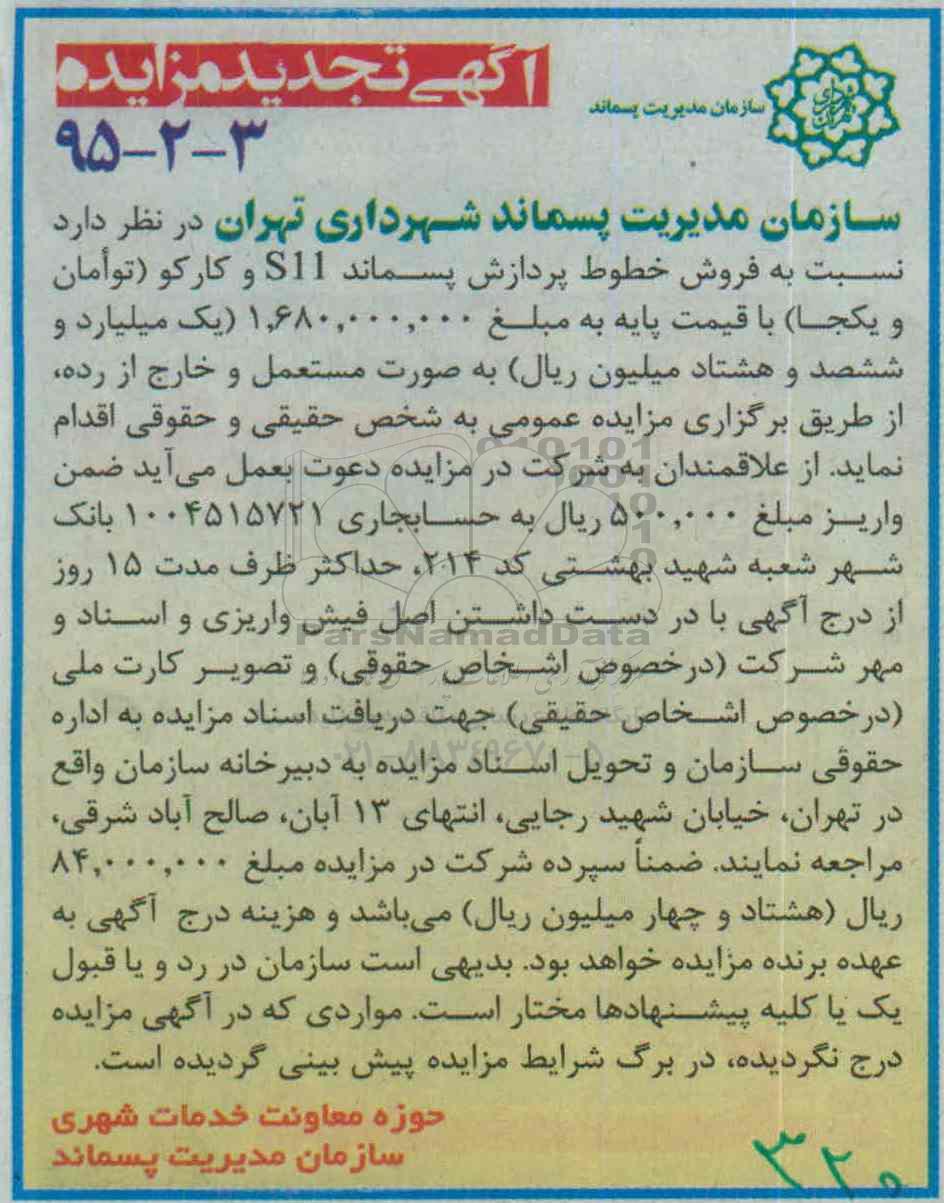 آگهی تجدید مزایده
۹۵-۲-۳
سازمان مدیریت پسماند
سازمان مدیریت پسماند شهرداری تهران در نظر دارد
نسبت به فروش خطوط پردازش پسماند S11 و کارکو (توأمان
و یکجا) با قیمت پایه به مبلغ ۱,۶۸۰,۰۰۰,۰۰۰ (یک میلیارد و
ششصد و هشتاد میلیون ریال) به صورت مستعمل و خارج از رده،
از طریق برگزاری مزایده عمومی به شخص حقیقی و حقوقی اقدام
نماید. از علاقمندان به شرکت در مزایده دعوت بعمل می‌آید ضمن
واریز مبلغ ۵۰۰,۰۰۰ ریال به حسابجاری ۱۰۰۴۵۱۵۷۲۱ بانک
شهر شعبه شهید بهشتی کد ۲۱۴، حداکثر ظرف مدت ۱۵ روز
از درج آگهی با در دست داشتن اصل فیش واریزی و اسناد و
مهر شرکت (درخصوص اشخاص حقوقی) و تصویر کارت ملی
(درخصوص اشخاص حقیقی) جهت دریافت اسناد مزایده به اداره
حقوقی سازمان و تحویل اسناد مزایده به دبیرخانه سازمان واقع
در تهران، خیابان شهید رجایی، انتهای ۱۳ آبان، صالح آباد شرقی،
مراجعه نمایند. ضمناً سپرده شرکت در مزایده مبلغ ۸۴,۰۰۰,۰۰۰
ریال (هشتاد و چهار میلیون ریال) می‌باشد و هزینه درج آگهی به
عهده برنده مزایده خواهد بود. بدیهی است سازمان در رد و یا قبول
یک یا کلیه پیشنهادها مختار است. مواردی که در آگهی مزایده
درج نگردیده، در برگ شرایط مزایده پیش بینی گردیده است.
حوزه معاونت خدمات شهری
سازمان مدیریت پسماند
ParsNamadData
۰۲۱-۸۸۳۴۹۶۷۰-۵